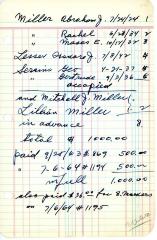 Miller Abraham J. 7/24/24 1
" Rachel 6/28/24 2
" Mason E. 10/17/32 3
Lesser Isidore J. 7/8/42 4
4-21-37 5
" Gertrude 9/2/36 6
occupied
and Mitchell J. Miller 1
Lillian Miller 2
in advance 8
total $ 1,000.00
paid 9/25/63 #869 500.00
" 7-6-64 #194 500.00
in full 1,000.00
also paid $36.00 for 8 markers
on 7/6/64 #1195